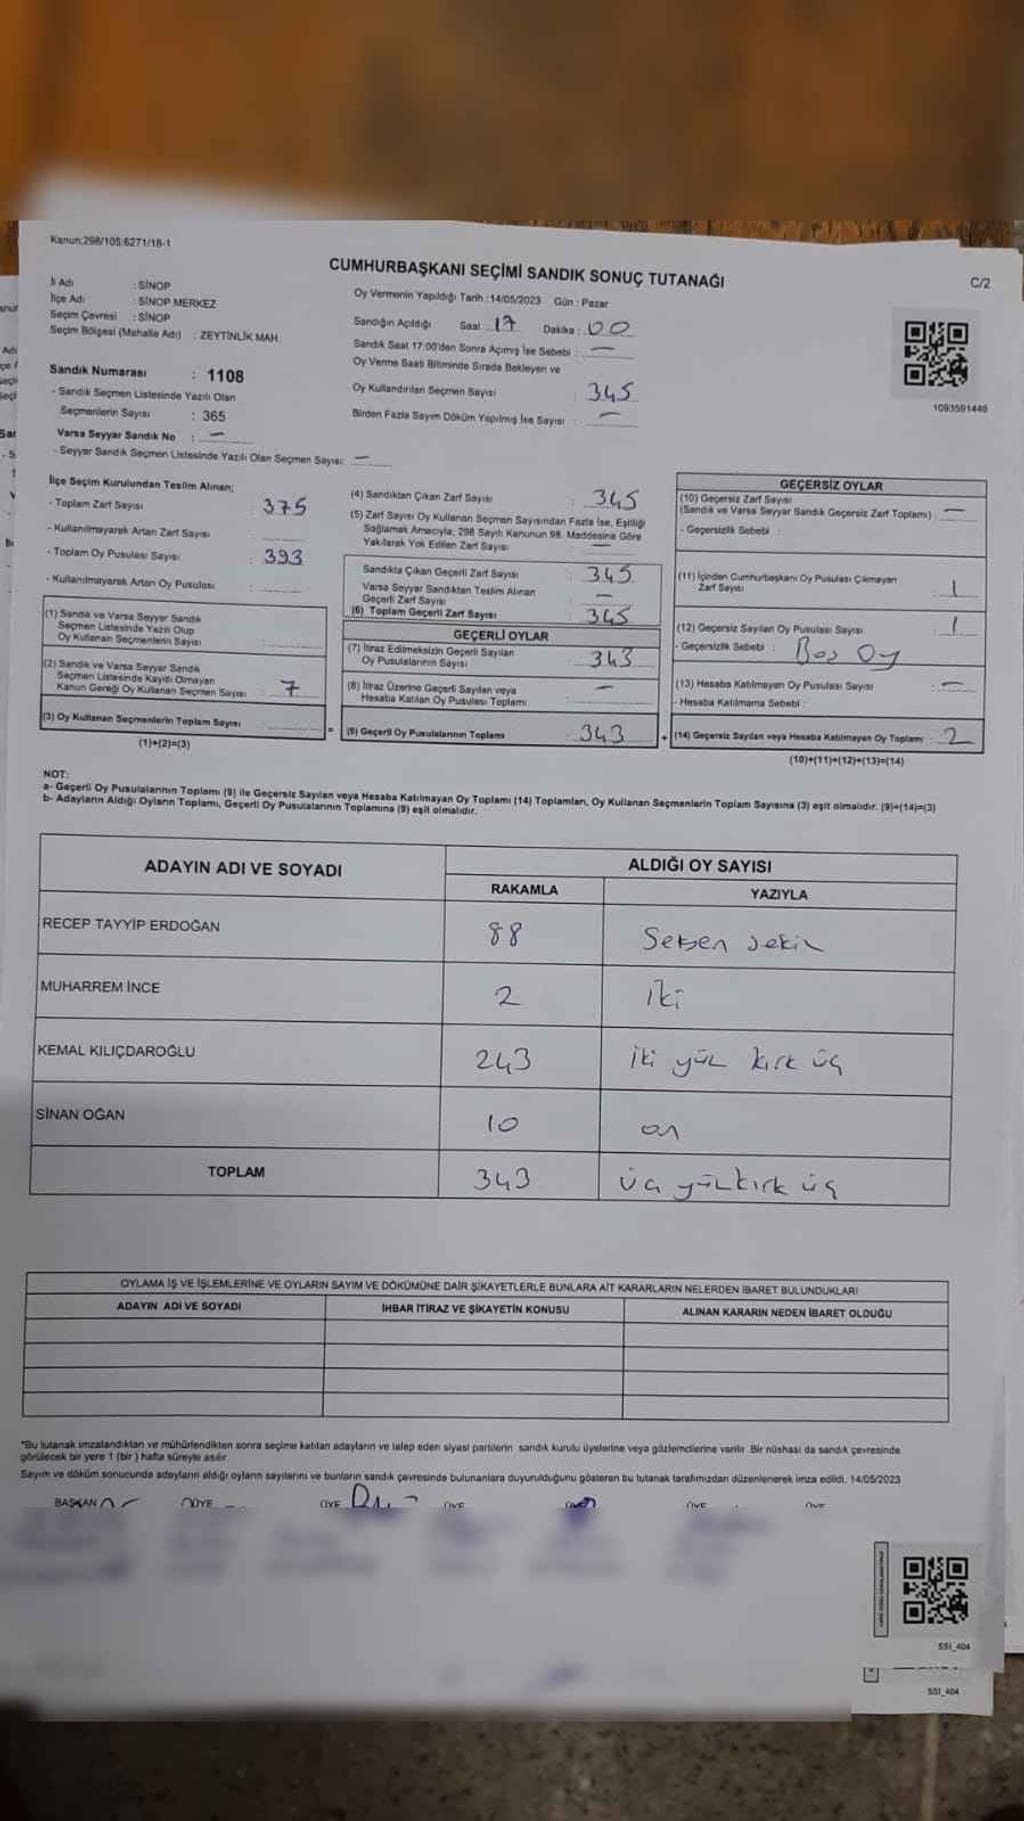 Kanun:298/105;6271/18-1
CUMHURBAŞKANI SEÇİMİ SANDIK SONUÇ TUTANAĞI
C/2
İl Adı : SİNOP
İlçe Adı : SİNOP MERKEZ
Seçim Çevresi : SİNOP
Seçim Bölgesi (Mahalle Adı) : ZEYTİNLİK MAH.
Sandık Numarası : 1108
- Sandık Seçmen Listesinde Yazılı Olan
Seçmenlerin Sayısı : 365
Varsa Seyyar Sandık No : —
- Seyyar Sandık Seçmen Listesinde Yazılı Olan Seçmen Sayısı: —
Oy Vermenin Yapıldığı Tarih :14/05/2023 Gün : Pazar
Sandığın Açıldığı Saat 17 Dakika : 00
Sandık Saat 17:00'den Sonra Açımış İse Sebebi : —
Oy Verme Saati Bitiminde Sırada Bekleyen ve
Oy Kullandırılan Seçmen Sayısı : 345
Birden Fazla Sayım Döküm Yapılmış İse Sayısı : —
1093591446
İlçe Seçim Kurulundan Teslim Alınan;
- Toplam Zarf Sayısı : 375
- Kullanılmayarak Artan Zarf Sayısı
- Toplam Oy Pusulası Sayısı : 393
- Kullanılmayarak Artan Oy Pusulası :
(1) Sandık ve Varsa Seyyar Sandık
Seçmen Listesinde Yazılı Olup
Oy Kullanan Seçmenlerin Sayısı :
(2) Sandık ve Varsa Seyyar Sandık
Seçmen Listesinde Kayıtlı Olmayan
Kanun Gereği Oy Kullanan Seçmen Sayısı : 7
(3) Oy Kullanan Seçmenlerin Toplam Sayısı
(1)+(2)=(3)
(4) Sandıktan Çıkan Zarf Sayısı : 345
(5) Zarf Sayısı Oy Kullanan Seçmen Sayısından Fazla İse, Eşitliği
Sağlamak Amacıyla; 298 Sayılı Kanunun 98. Maddesine Göre
Yakılarak Yok Edilen Zarf Sayısı : —
Sandıkta Çıkan Geçerli Zarf Sayısı : 345
Varsa Seyyar Sandıktan Teslim Alınan
Geçerli Zarf Sayısı : —
(6) Toplam Geçerli Zarf Sayısı : 345
GEÇERLİ OYLAR
(7) İtiraz Edilmeksizin Geçerli Sayılan
Oy Pusulalarının Sayısı : 343
(8) İtiraz Üzerine Geçerli Sayılan veya
Hesaba Katılan Oy Pusulası Toplamı : —
(9) Geçerli Oy Pusulalarının Toplamı : 343
GEÇERSİZ OYLAR
(10) Geçersiz Zarf Sayısı
(Sandık ve Varsa Seyyar Sandık Geçersiz Zarf Toplamı) : —
- Geçersizlik Sebebi :
(11) İçinden Cumhurbaşkanı Oy Pusulası Çıkmayan
Zarf Sayısı : 1
(12) Geçersiz Sayılan Oy Pusulası Sayısı : 1
- Geçersizlik Sebebi : Boş Oy
(13) Hesaba Katılmayan Oy Pusulası Sayısı : —
- Hesaba Katılmama Sebebi :
(14) Geçersiz Sayılan veya Hesaba Katılmayan Oy Toplamı : 2
(10)+(11)+(12)+(13)=(14)
NOT:
a- Geçerli Oy Pusulalarının Toplamı (9) ile Geçersiz Sayılan veya Hesaba Katılmayan Oy Toplamı (14) Toplamları, Oy Kullanan Seçmenlerin Toplam Sayısına (3) eşit olmalıdır. (9)+(14)=(3)
b- Adayların Aldığı Oyların Toplamı, Geçerli Oy Pusulalarının Toplamına (9) eşit olmalıdır.
ADAYIN ADI VE SOYADI ALDIĞI OY SAYISI
RAKAMLA YAZIYLA
RECEP TAYYİP ERDOĞAN 88 Seksen sekiz
MUHARREM İNCE 2 iki
KEMAL KILIÇDAROĞLU 243 iki yüz kırk üç
SİNAN OĞAN 10 on
TOPLAM 343 üç yüz kırk üç
OYLAMA İŞ VE İŞLEMLERİNE VE OYLARIN SAYIM VE DÖKÜMÜNE DAİR ŞİKAYETLERLE BUNLARA AİT KARARLARIN NELERDEN İBARET BULUNDUKLARI
ADAYIN ADI VE SOYADI İHBAR İTİRAZ VE ŞİKAYETİN KONUSU ALINAN KARARIN NEDEN İBARET OLDUĞU
*Bu tutanak imzalandıktan ve mühürlendikten sonra seçime katılan adayların ve talep eden siyasi partilerin sandık kurulu üyelerine veya gözlemcilerine verilir. Bir nüshası da sandık çevresinde
görülecek bir yere 1 (bir ) hafta süreyle asılır.
Sayım ve döküm sonucunda adayların aldığı oyların sayılarını ve bunların sandık çevresinde bulunanlara duyurulduğunu gösteren bu tutanak tarafımızdan düzenlenerek imza edildi. 14/05/2023
BAŞKAN ÜYE ÜYE ÜYE ÜYE ÜYE
SSI_404
SSI_404